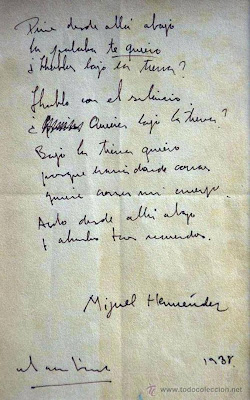 Dime desde allá abajo
la palabra te quiero
¿Hablas bajo la tierra?
Hablo con el silencio
¿ Quieres bajo la tierra?
Bajo la tierra quiero
porque hacia donde corras
quiere correr mi cuerpo.
Ardo desde allí abajo
y alumbro tus recuerdos.
Miguel Hernández
1938
todocoleccion.net